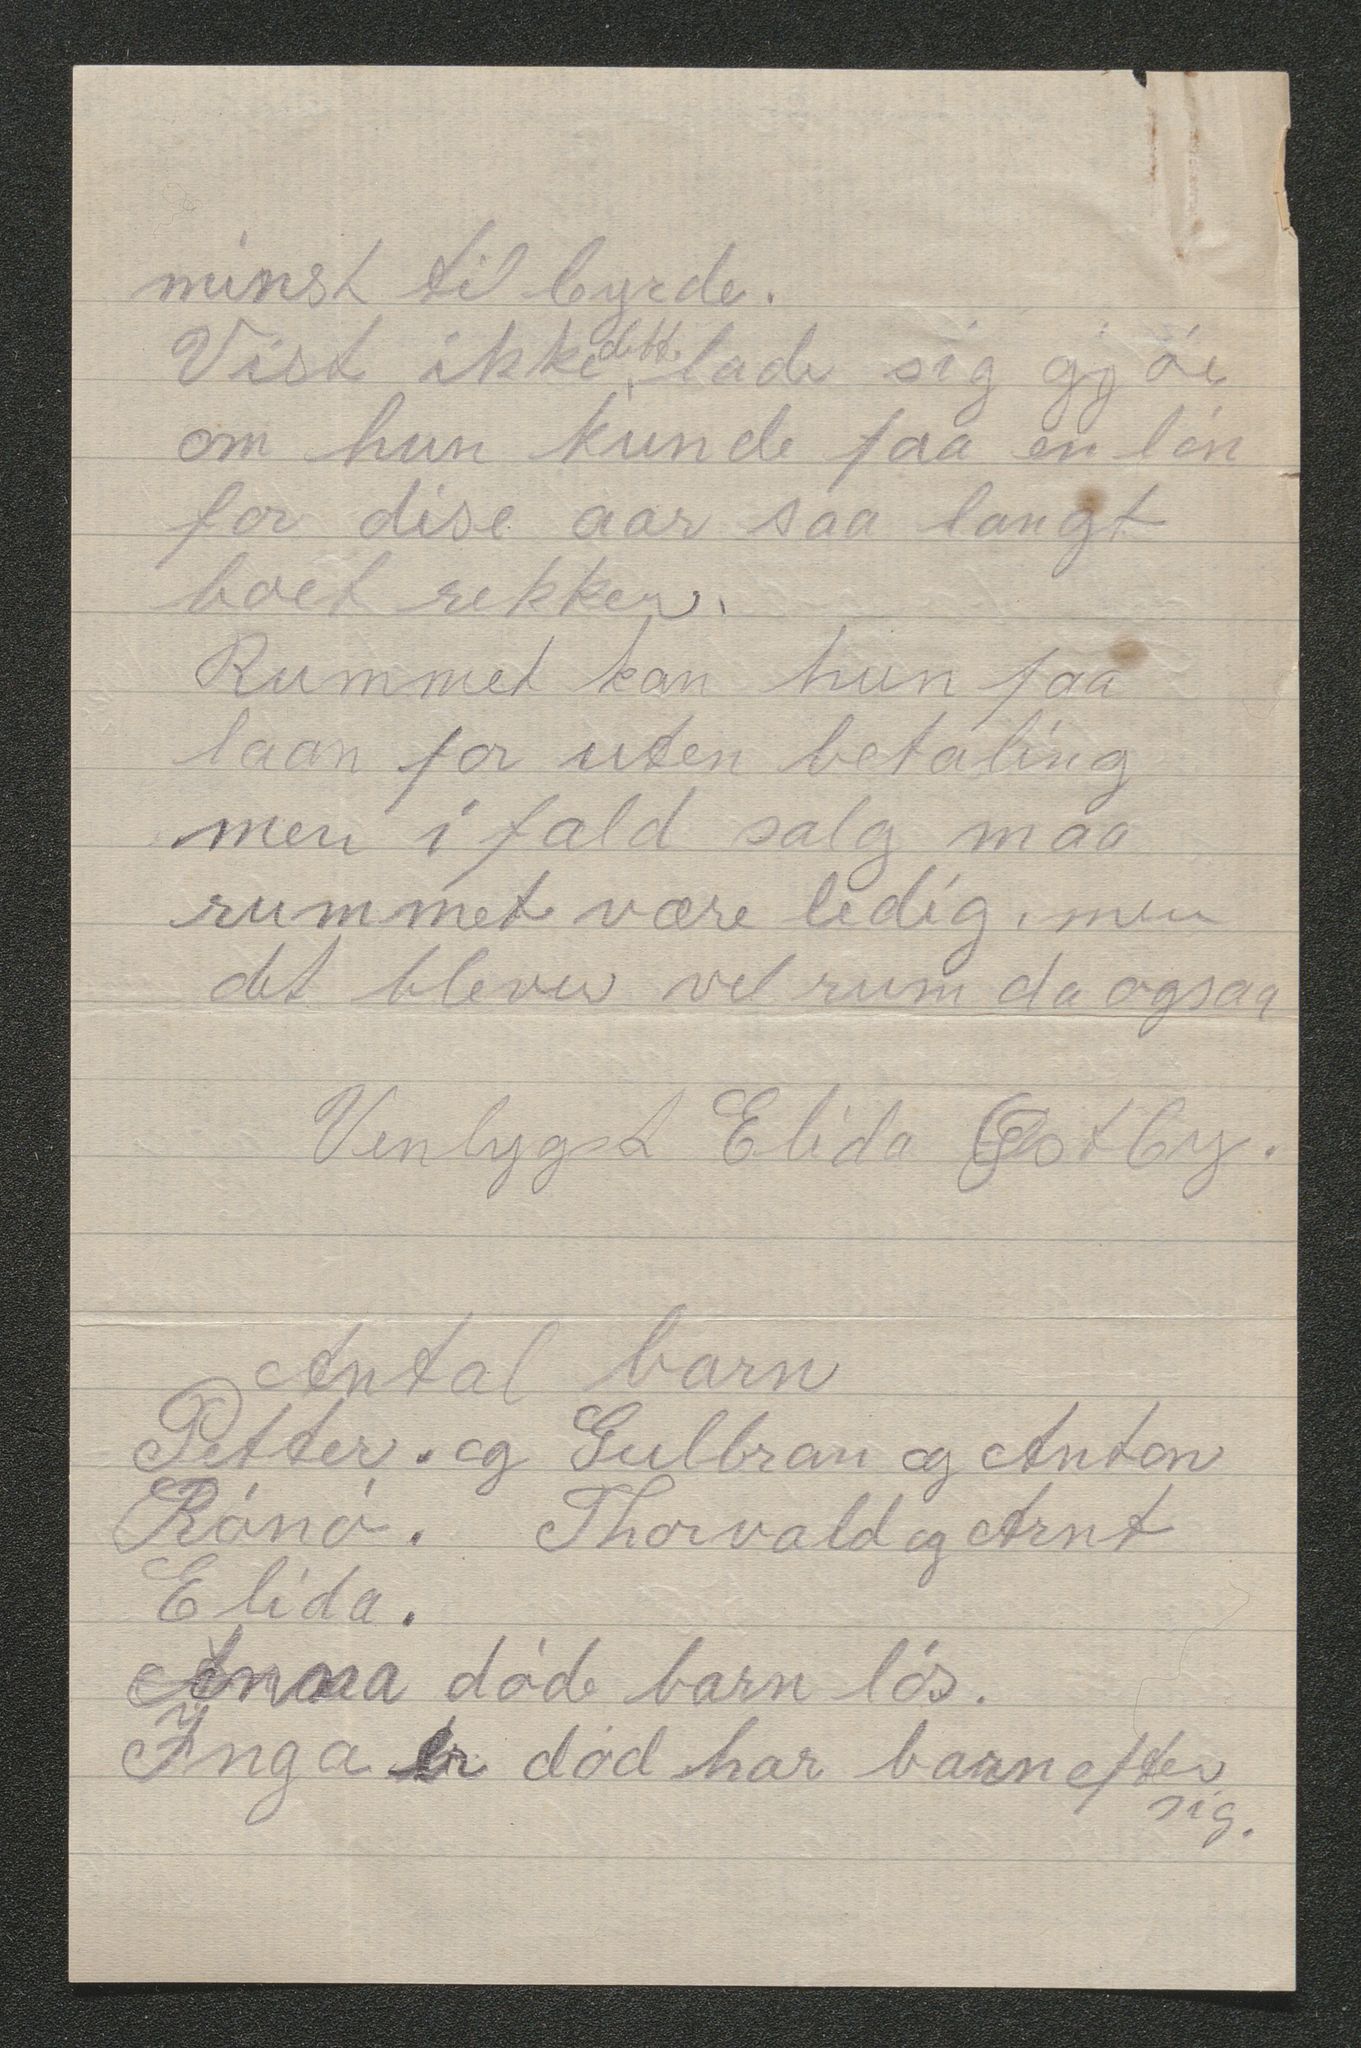 minst til byrde.
Vist ikke dette lade sig gjöe
om hun kunde faa en lön
for dise aar saa langt
boet rekker.
Rummet kan hun faa
laan for uten betaling
men i fald salg maa
rummet være ledig, men
det blever vel rum da ogsaa
Venlygst Elida Østby.
Antal barn
Petter. og Gulbran og Anton
Rónó. Thorvald og Arnt
Elida.
Anna döde barn lös.
Inga er död har barn efter
sig.